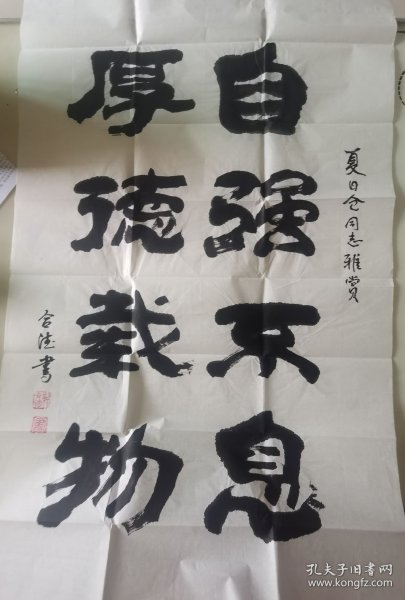 夏日仓同志雅赏
自强不息
厚德载物
合德書
孔夫子旧书网
www.kongfz.com